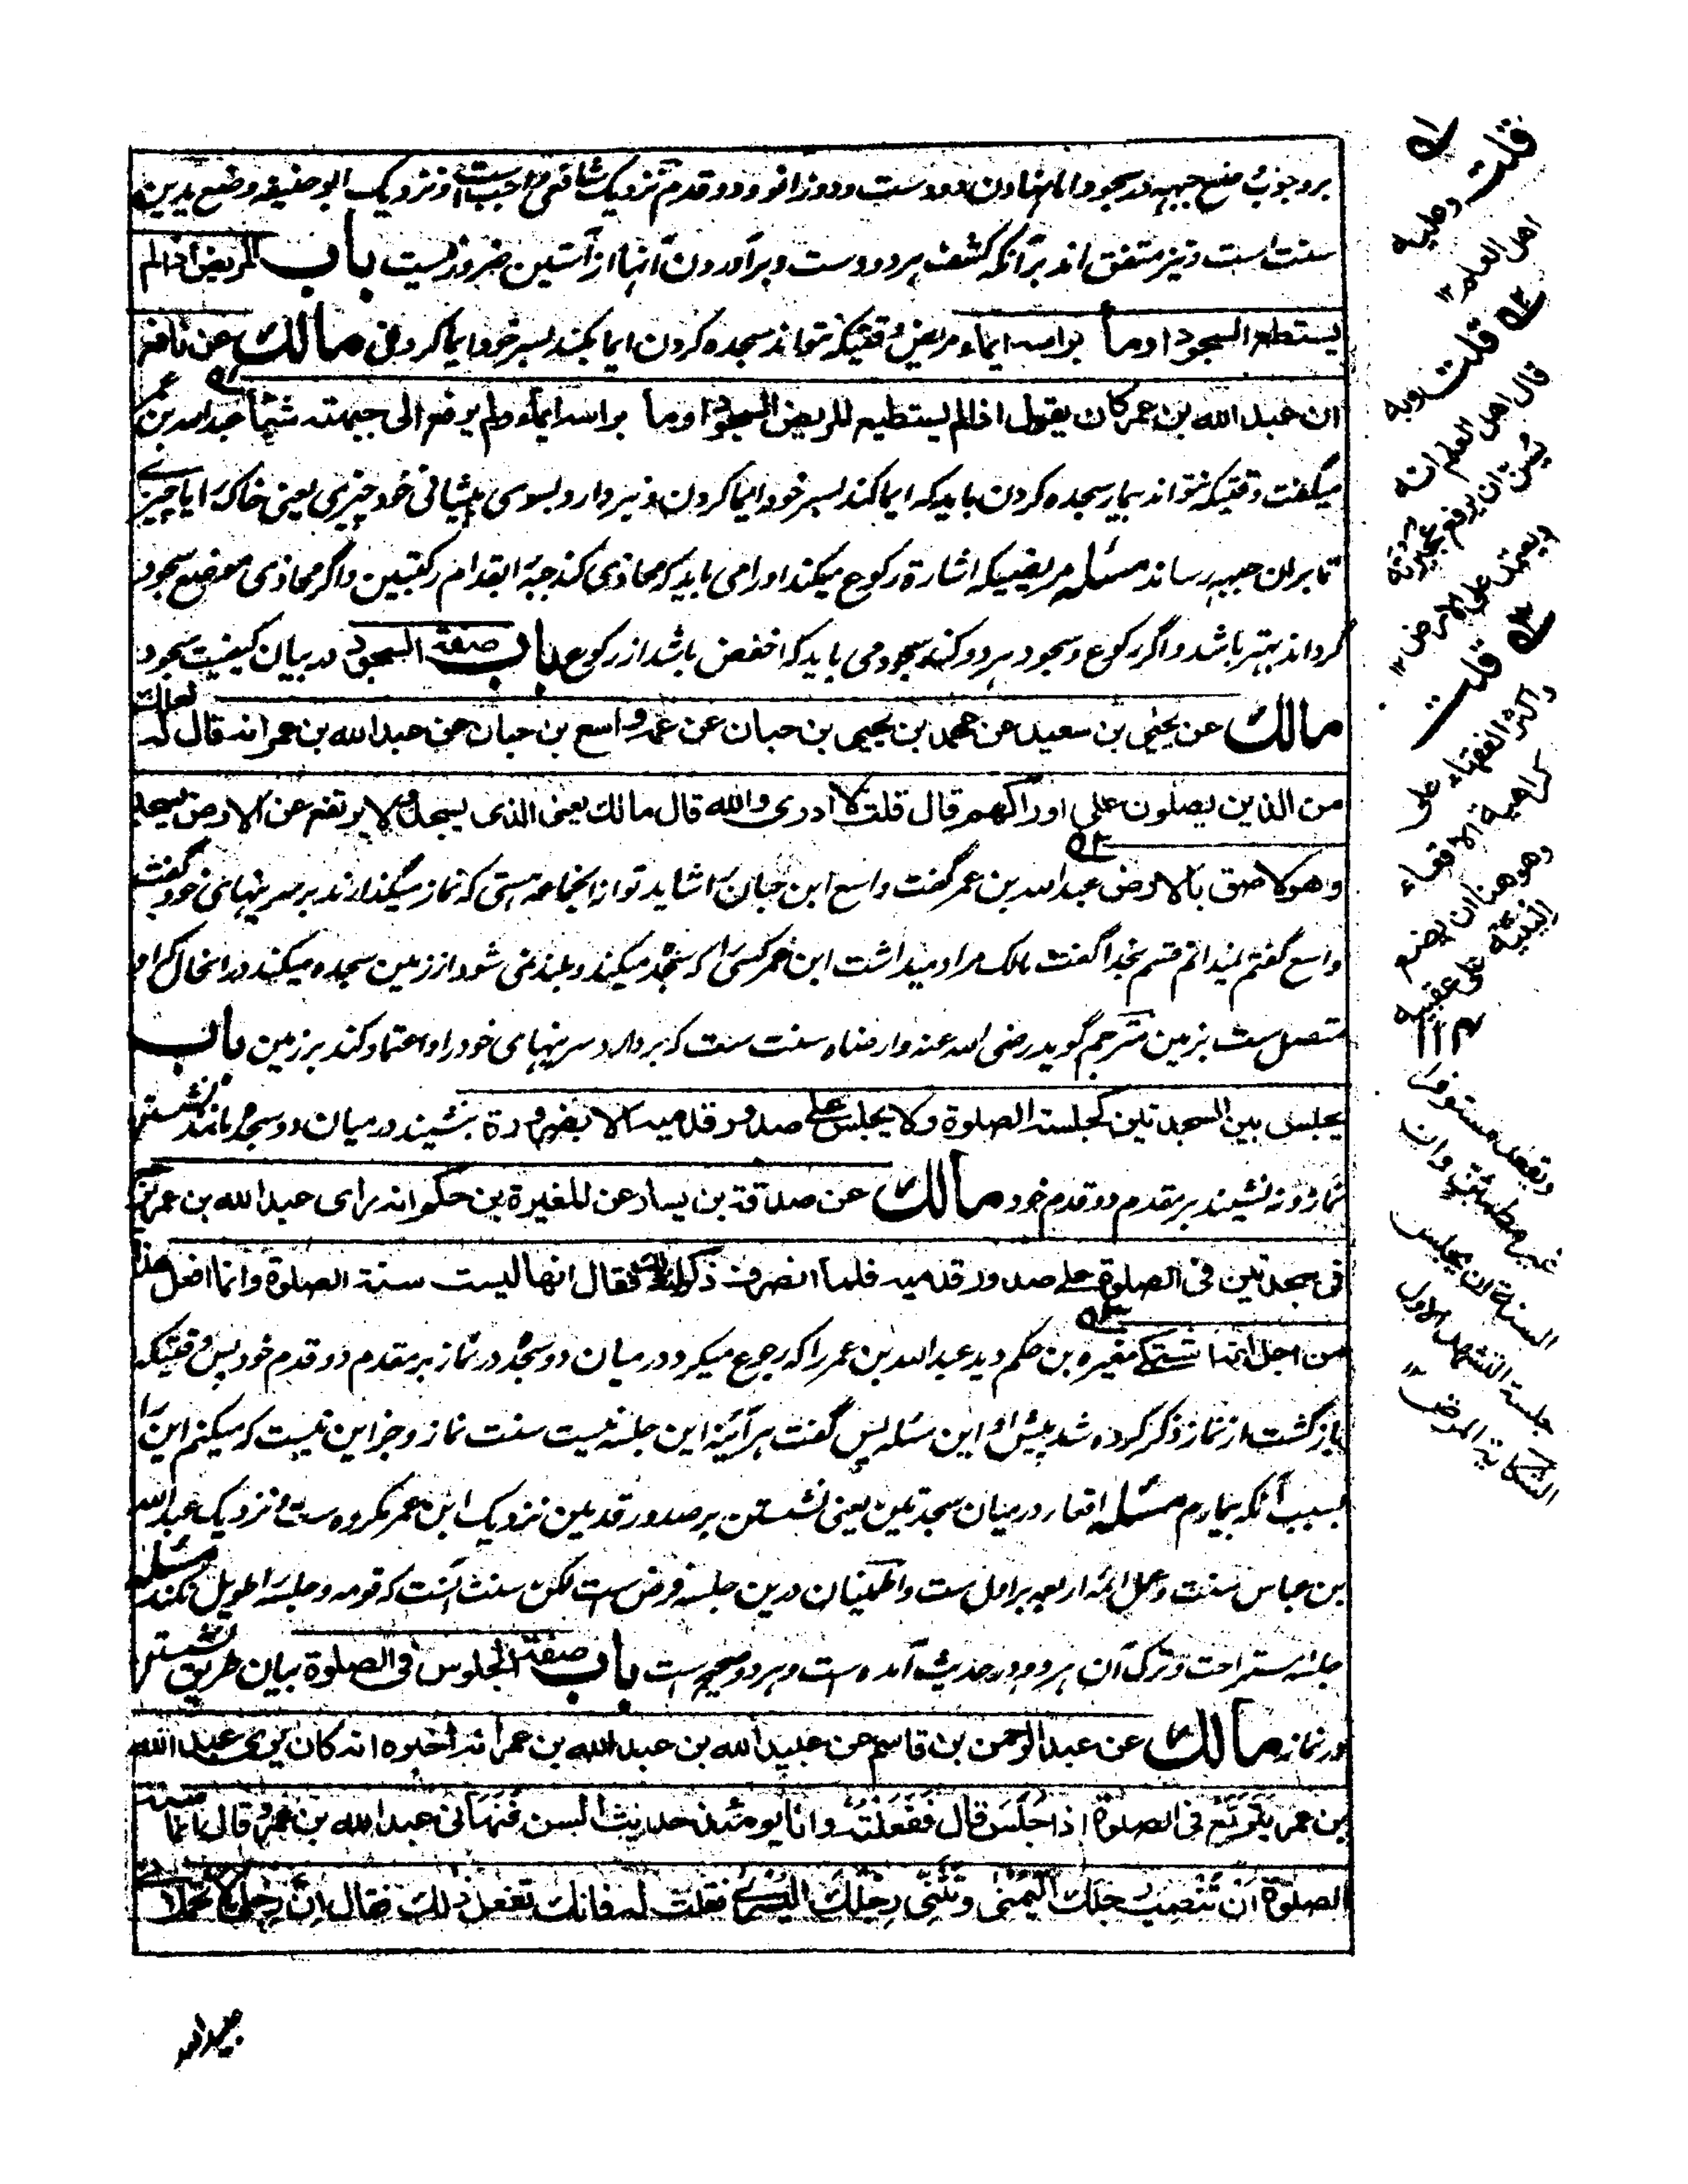 بر وجوب وضع جبهه در سجود اما نهادن دو دست و دو زانو و دو قدم نزدیک شافعی واجب است و نزدیک ابو حنیفه وضع یدین
سنت است و نیز متفق اند بر آنکه کشف هر دو دست و برآوردن آنها از آستین ضرور نیست باب المریض اذا لم
یستطع السجود اوما براسه ایماء مریض وقتیکه نتواند سجده کردن ایما بکند بسر خود ایما کردنی مالک عن نافع
ان عبد الله بن عمر کان یقول اذا لم یستطیع المریض السجود اوما براسه ایماء ولم یرفع الی جبهته شیئا عبد الله بن عمر
میگفت وقتیکه نتواند بیمار سجده کردن باید که ایما کند بسر خود ایما کردن و نبردارد بسوی پیشانی خود چیزی یعنی خاک یا چیزے
تا بران جبهه رساند مسئله مریضیکه اشارة رکوع میکند او را می باید که محاذی کند جبهه اقدام رکبتین و اگر محاذی موضع سجود
گرداند بهتر باشد و اگر رکوع و سجود هر دو کند سجود می باید که اخفض باشد از رکوع باب صفة السجود در بیان کیفیت سجود
مالک عن یحیی بن سعید عن محمد بن یحیی بن حبان عن عمه واسع بن حبان عن عبد الله بن عمر انه قال له لعلک
من الذین یصلون علی اوراکهم قال قلت لا ادری والله قال مالک یعنی الذی یسجد ولا یرتفع عن الارض یسجد
وهو لاصق بالارض عبد الله بن عمر گفت واسع ابن حبان را شاید تو از انجماعه هستی که نماز میگذارند بر سرینهای خود گفت
واسع گفتم نمیدانم قسم بخدا گفت مالک مراد میداشت ابن عمر کسی را که سجده میکند و بلند نمی شود از زمین سجده میکند در انحال که او
متصل ست بزمین مترجم گوید رضی الله عنه وارضاه سنت ست که بردارد سرینهای خود را و اعتماد کند بر زمین باب
یجلس بین السجدتین کجلسة الصلوة ولا یجلس علی صدور قدمیه الا بضرورة بنشیند در میان دو سجده مانند نشستن
نماز و نه نشیند بر مقدم دو قدم خود مالک عن صدقة بن یسار عن المغیرة بن حکیم انه رای عبد الله بن عمر یرجع
فی سجدتین فی الصلوة علی صدور قدمیه فلما انصرف ذکر له ذلک فقال انها لیست سنة الصلوة وانما افعل هذا
من اجل انی اشتکی مغیره بن حکم دید عبد الله بن عمر را که رجوع میکرد در میان دو سجده در نماز بر مقدم دو قدم خود پس وقتیکه
بازگشت از نماز ذکر کرده شد پیش او این مسئله پس گفت هر آئینه این جلسه نیست سنت نماز و جز این نیست که میکنم این را
بسبب آنکه بیمارم مسئله اقعا در میان سجدتین یعنی نشستن بر صدور قدمین نزدیک ابن عمر مکروه ست و نزدیک عبد الله
بن عباس سنت و عمل ائمه اربعه بر اول ست و اطمینان درین جلسه فرض ست لکن سنت آنست که قومه و جلسه را طویل نکند مسئله
جلسه استراحت و ترک آن هر دو در حدیث آمده ست و هر دو صحیح ست باب صفة الجلوس فی الصلوة بیان طریق نشستن
در نماز مالک عن عبد الرحمن بن قاسم عن عبید الله بن عبد الله بن عمر انه اخبره انه کان یری عبد الله
بن عمر یَتَرَبَّع فی الصلوة اذا جلس قال فَفَعَلْتُه وانا یومئذ حدیث السن فَنَهَانی عبد الله بن عمر وقال انما سنة
الصلوة اَنْ تَنْصِبَ رجلک الیُمْنی وتَثْنِی رِجْلَکَ الیُسْری فقلت له فانک تفعل ذلک فقال اِنَّ رِجْلَیَّ لا تحملانی
عبد الله
قلت وعلیه
اهل العلم ۱۲
قلت وبه
قال اهل العلم انه
یسن ان یرفع عجیزته
ویعتمد علی الارض ۱۲
قلت
واکثر الفقهاء علی
کراهیة الاقعاء
وهو هنا ان یضع
الیتیه علی عقبیه
ویقعد مستوفزا
غیر مطمئن وان
السنة ان یجلس
جلسة التشهد الاول
الشکایة المرض ۱۲